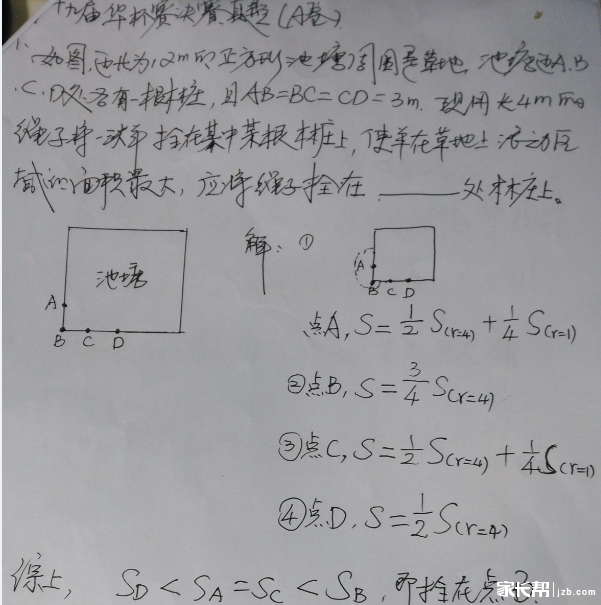 十九届华杯赛决赛真题(A卷)
1. 如图,边长为12m的正方形池塘周围是草地,池塘边A.B
.C.D处各有一根木桩,且AB=BC=CD=3m.现用长4m的
绳子将一头羊拴在其中某根木桩上,使羊在草地上活动区
域的面积最大,应将绳子拴在 ______处木庄上。
池塘
A
B C D
解:①
A
B C D
点A, S=1/2 S(r=4)+1/4 S(r=1)
②点B, S=3/4 S(r=4)
③点C, S=1/2 S(r=4)+1/4 S(r=1)
④点D, S=1/2 S(r=4)
综上, SD<SA=SC<SB,即拴在点B.
家长帮 jzb.com